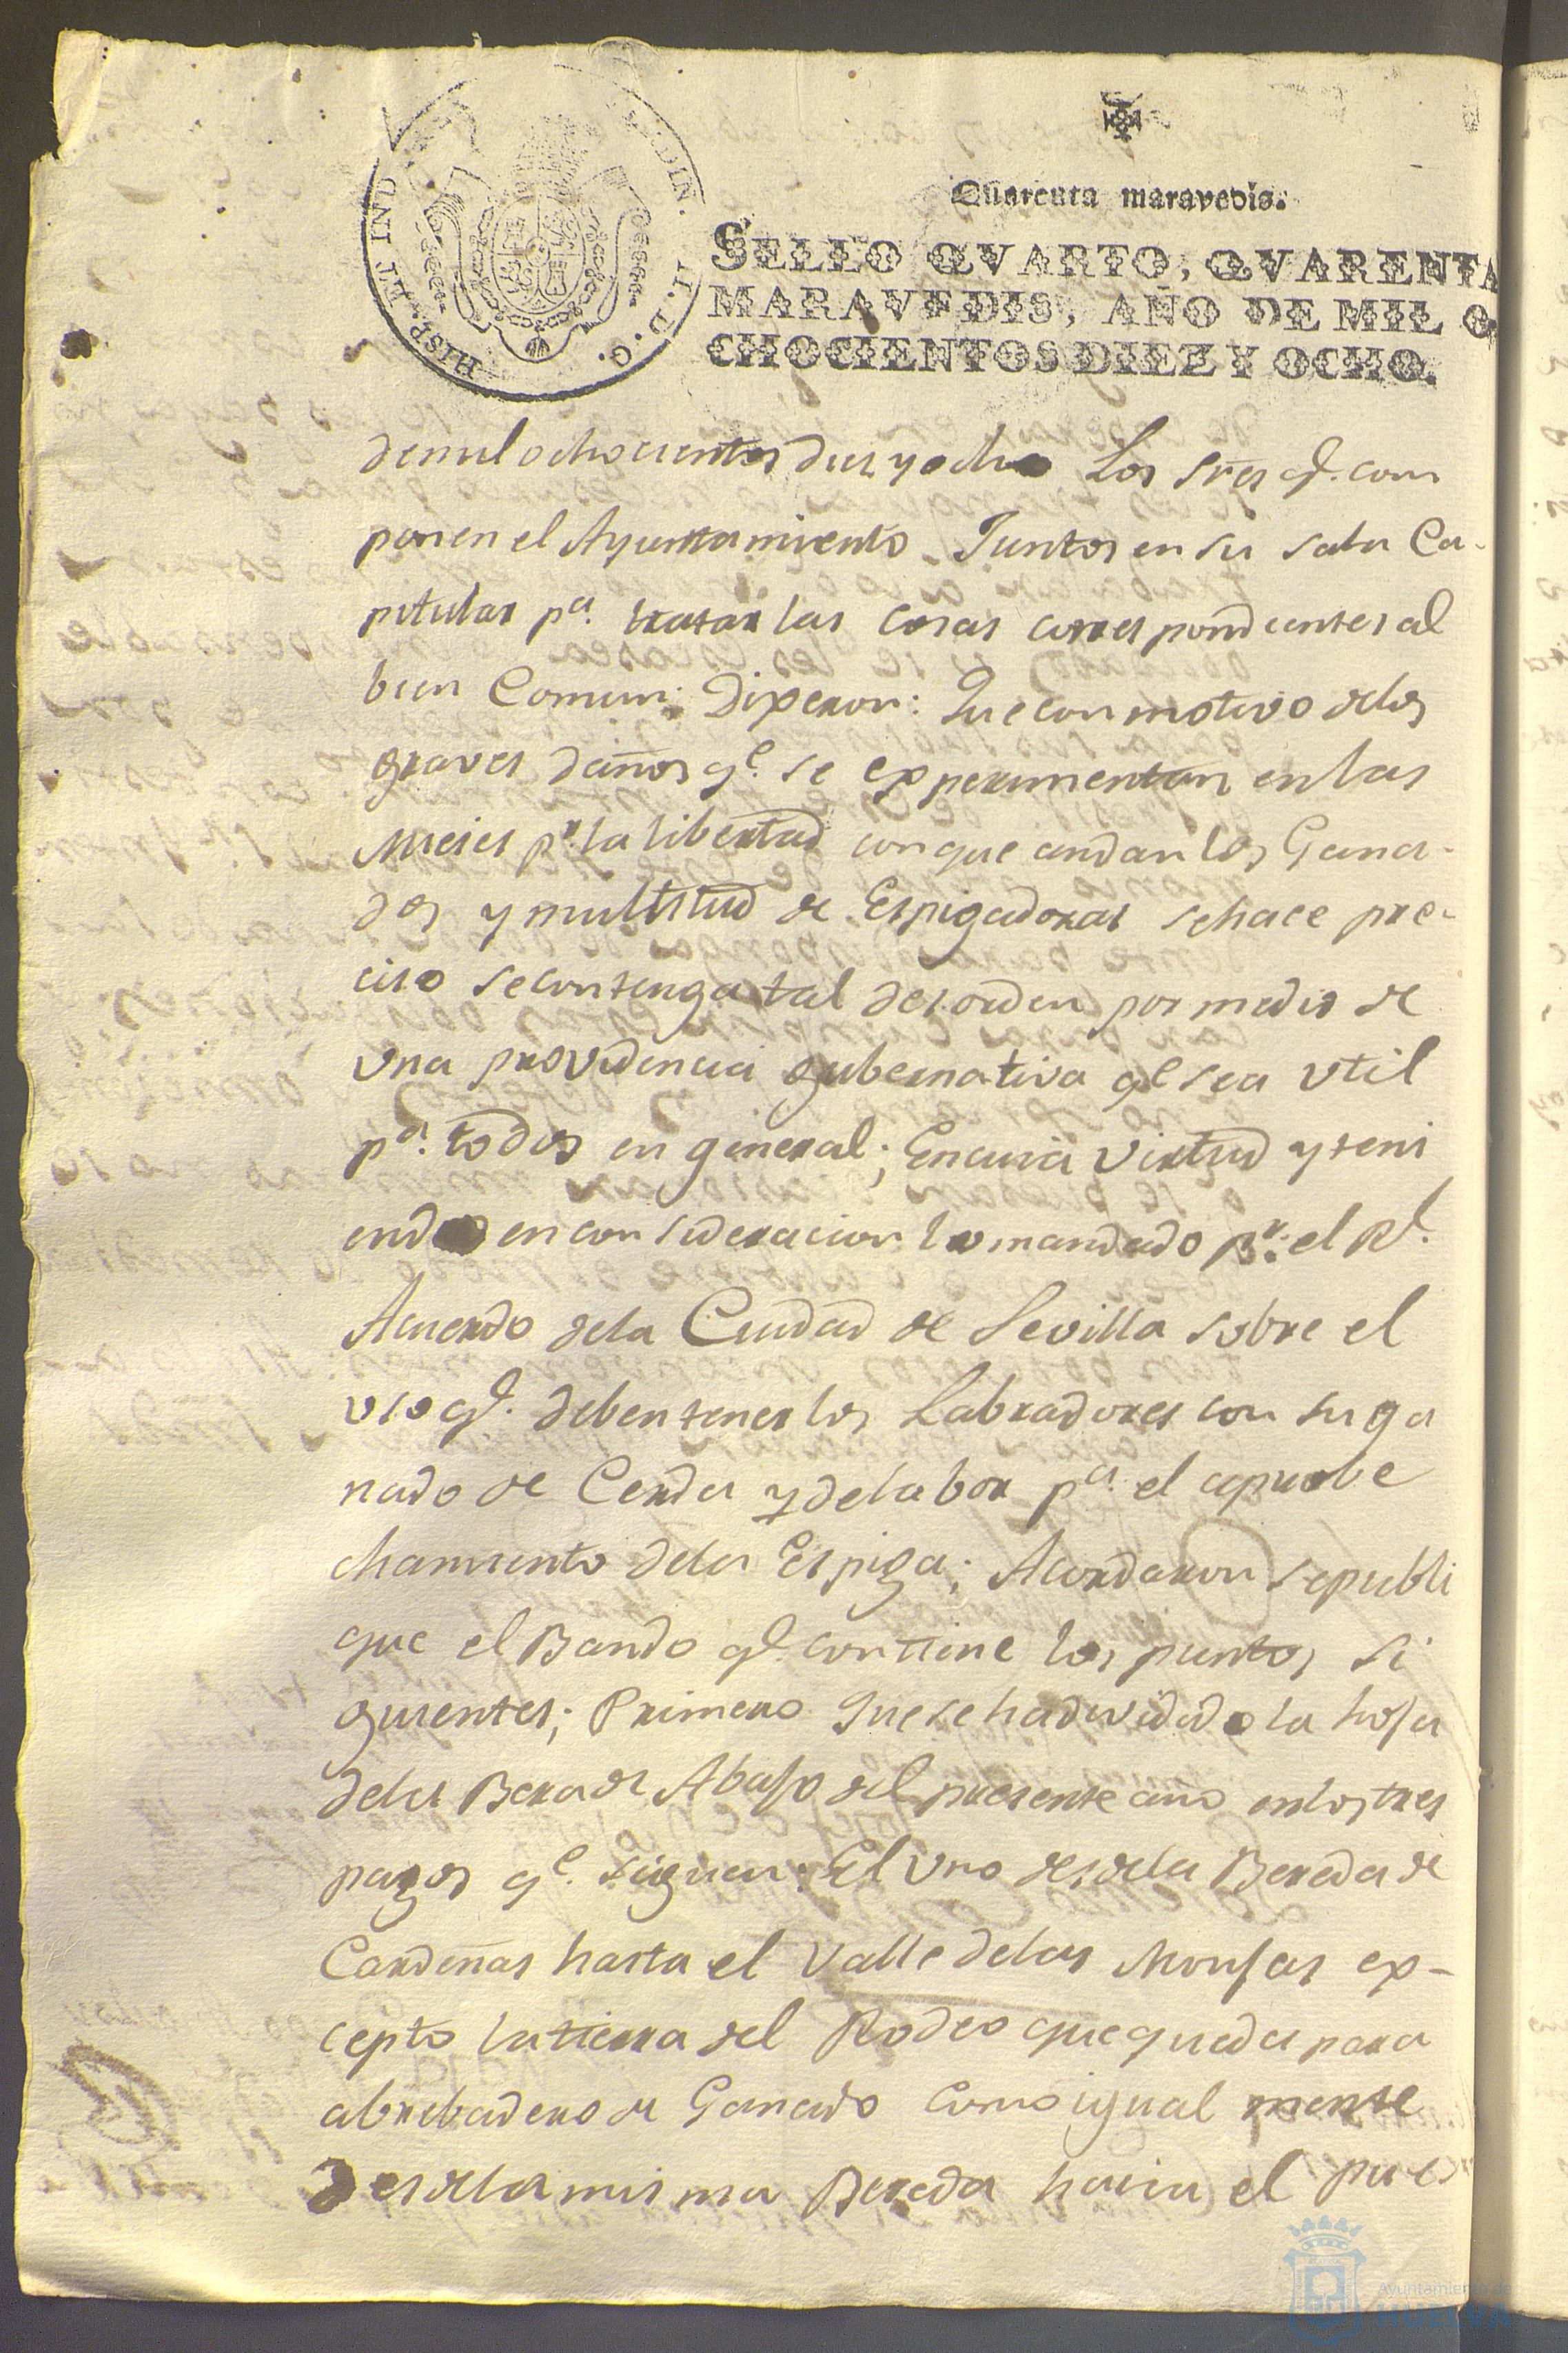 HISP. ET IND
DIN.
I. D. G.
Quarenta maravedis.
SELLO QVARTO, QVARENTA
MARAVEDIS, AÑO DE MIL O
CHOCIENTOS DIEZ Y OCHO.
de mil ochocientos diez y ocho Los Sres q.e com
ponen el Ayuntamiento Juntos en su sala Ca-
pitular p.a tratar las cosas correspondientes al
bien Comun: Dixeron: Que con motivo de los
graves daños q.e se experimentan en las
Mieses p.r la libertad con que andan los Gana-
dos y multitud de Espigadoras se hace pre-
ciso se contenga tal desorden por medio de
una providencia gubernativa q.e sea util
p.a todos en general; En cuia virtud y teni
endo en consideracion lo mandado p.r el R.l
Acuerdo de la Ciudad de Sevilla sobre el
uso q.e deben tener los Labradores con su ga
nado de Cerda y de labor p.a el aprobe
chamiento de la Espiga; Acordaron se publi
que el Bando q.e contiene los puntos si
guientes; Primero Que se ha dividido la hoja
de la Bera de Abajo del presente año en los tres
pagos q.e siguen: El uno desde la Bereda de
Cardeñas hasta el Valle de las Monjas ex-
cepto la tierra del Rodeo que queda para
abrebadero de Ganado como igualmente
desde la misma Bereda hacia el pues
Ayuntamiento de
HUELVA